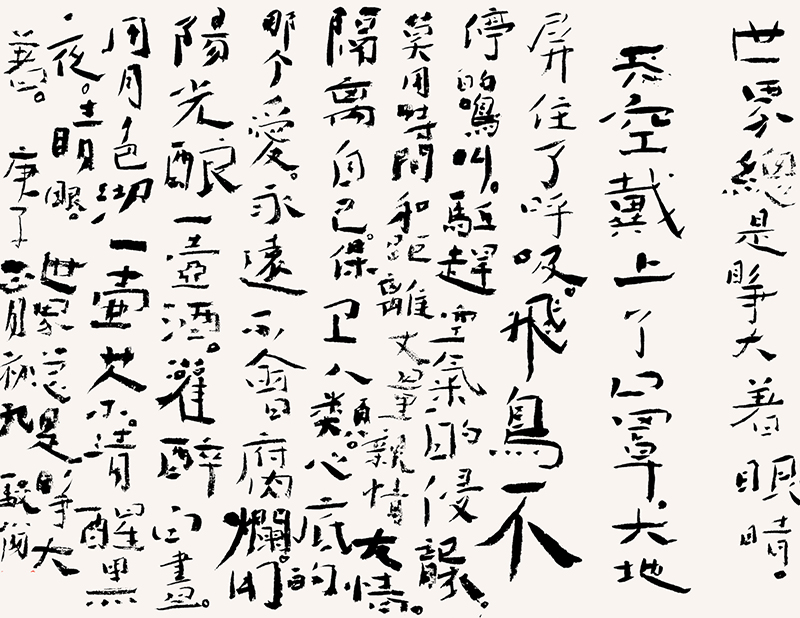 世界總是睜大着眼睛。
天空戴上了口罩大地
屏住了呼吸。飛鳥不
停的鳴叫。驅趕空氣的侵襲。
莫用時間和距離丈量親情友情。
隔離自己。保卫人類。心底的
那个愛。永遠不會腐爛。用
陽光釀一壺酒。灌醉白晝。
用月色沏一壺茶。清醒黑
夜。睛眼。世界总是睜大
着。庚子